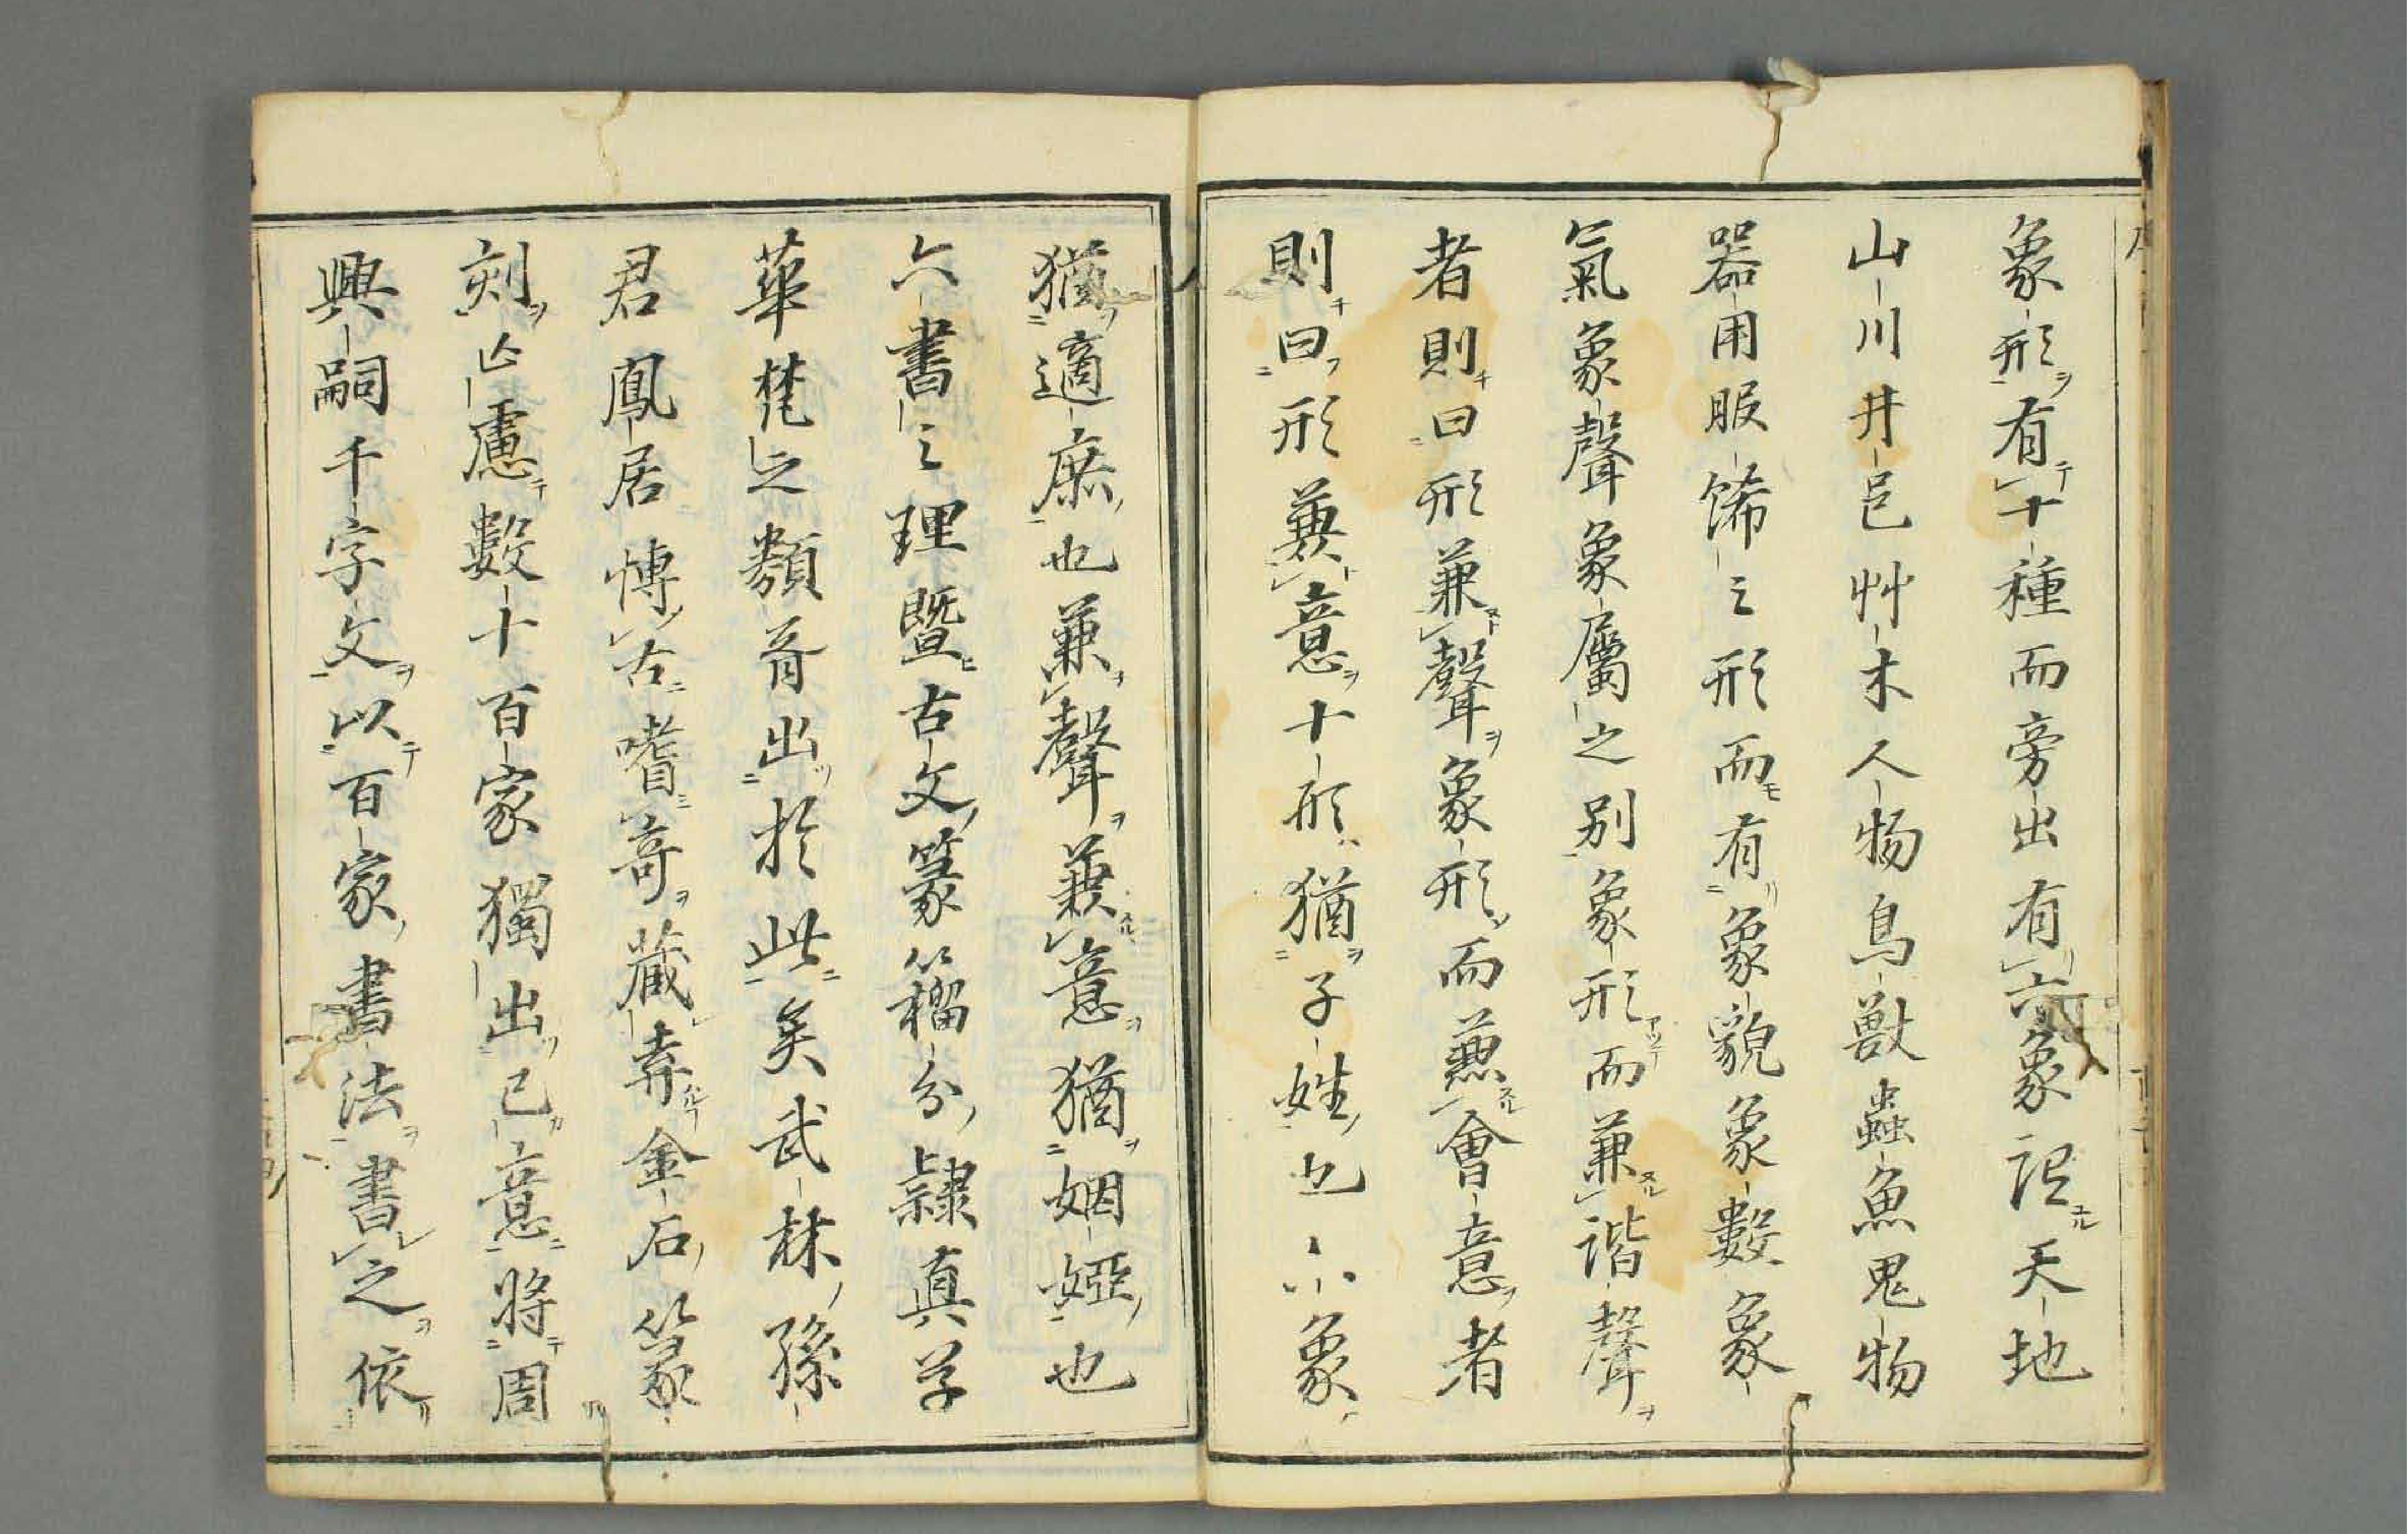 象形有十種而旁出有六象訳天地
山川井邑艸木人物鳥獣蟲魚鬼物
器用服飾之形而有象貌象數象
氣象聲象屬之別象形而兼諧聲
者則曰形兼聲象形而兼會意者
則曰形兼意十形猶子姓也六象
猶適庶也兼聲兼意猶姻婭也
六書之理曁古文篆籀分隷真草
華梵之類胥出於此矣武林孫
君鳳居博古嗜奇蔵弆金石篆
刻亡慮數十百家獨出己意將周
興嗣千字文以百家書法書之依